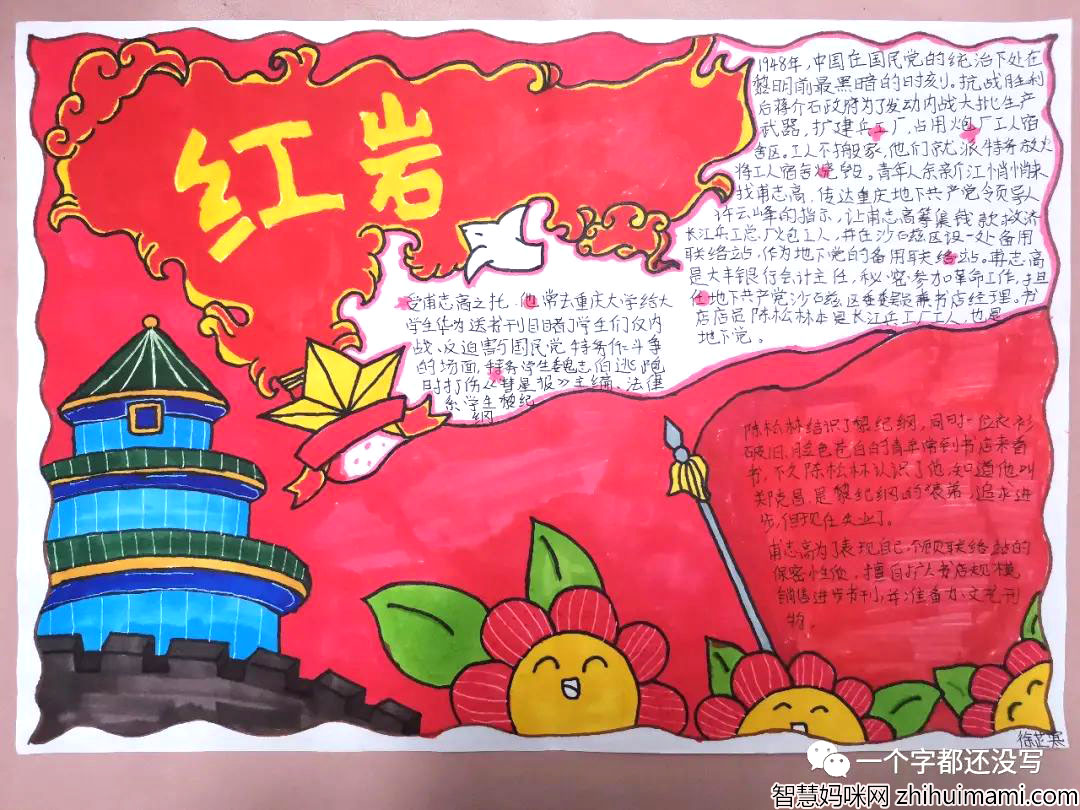 红岩
1948年,中国在国民党的统治下处在
黎明前最黑暗的时刻。抗战胜利
后蒋介石政府为了发动内战大批生产
武器,扩建兵工厂,占用炮厂工人宿
舍区。工人不搬家,他们就派特务放火
将工人宿舍烧毁。青年人余新江悄悄来
找甫志高,传达重庆地下共产党领导人
许云峰的指示,让甫志高筹集钱款救济
长江兵工总厂炮工人,并在沙石兹区设一处备用
联络站,作为地下党的备用联络站。甫志高
是大丰银行会计主任,秘密参加革命工作,担
任地下共产党沙石兹区委委员兼书店经理。书
店店员陈松林本是长江兵工厂工人,也是
地下党。
受甫志高之托,他常去重庆大学给大
学生华为送书刊目睹了学生们反内
战、反迫害与国民党特务作斗争
的场面,特务学生魏志伯逃跑
时打伤《彗星报》主编、法律
系学生黎纪
纲
陈松林结识了黎纪纲,同时一位衣衫
破旧、脸色苍白的青年常到书店来看
书,不久陈松林认识了他,知道他叫
郑克昌,是黎纪纲的表弟,追求进
步,但现在失业了。
甫志高为了表现自己,不顾联络站的
保密性质,擅自扩大书店规模
销售进步书刊,并准备办文艺刊
物。
一个字都还没写
智慧妈咪网 zhihuimami.com